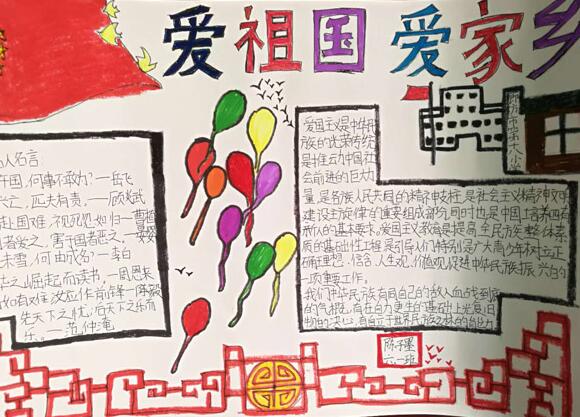 爱祖国爱家乡
人名言:
国,何事不敢为?一岳飞
亡,匹夫有责,一顾炎武
赴国难,视死忽如归一曹植
者爱之,害于国者恶之,一晏婴
未雪,何由成名?一李白
之崛起而读书,一周恩来
有难,汝应作前锋一陈毅
先天下之忧,后天下之乐而
乐。一范仲淹
爱国主义是中华民
族的光荣传统,
是推动中国社
会前进的巨大力
量,是各族人民共同的精神支柱,是社会主义精神文明
建设主旋律的重要组成部分,同时也是中国培养四有
新人的基本要求,爱国主义教育是提高全民族整体素
质的基础性工程,是引导人们特别是广大青少年树立正
确理想、信念、人生观、价值观,促进中华民族振兴的
一项重要工作。
我们中华民族有同自己的敌人血战到底
的气概,有在自力更生的基础上光复旧
物的决心,有自立于世界民族之林的能力
陈子墨
六.一班